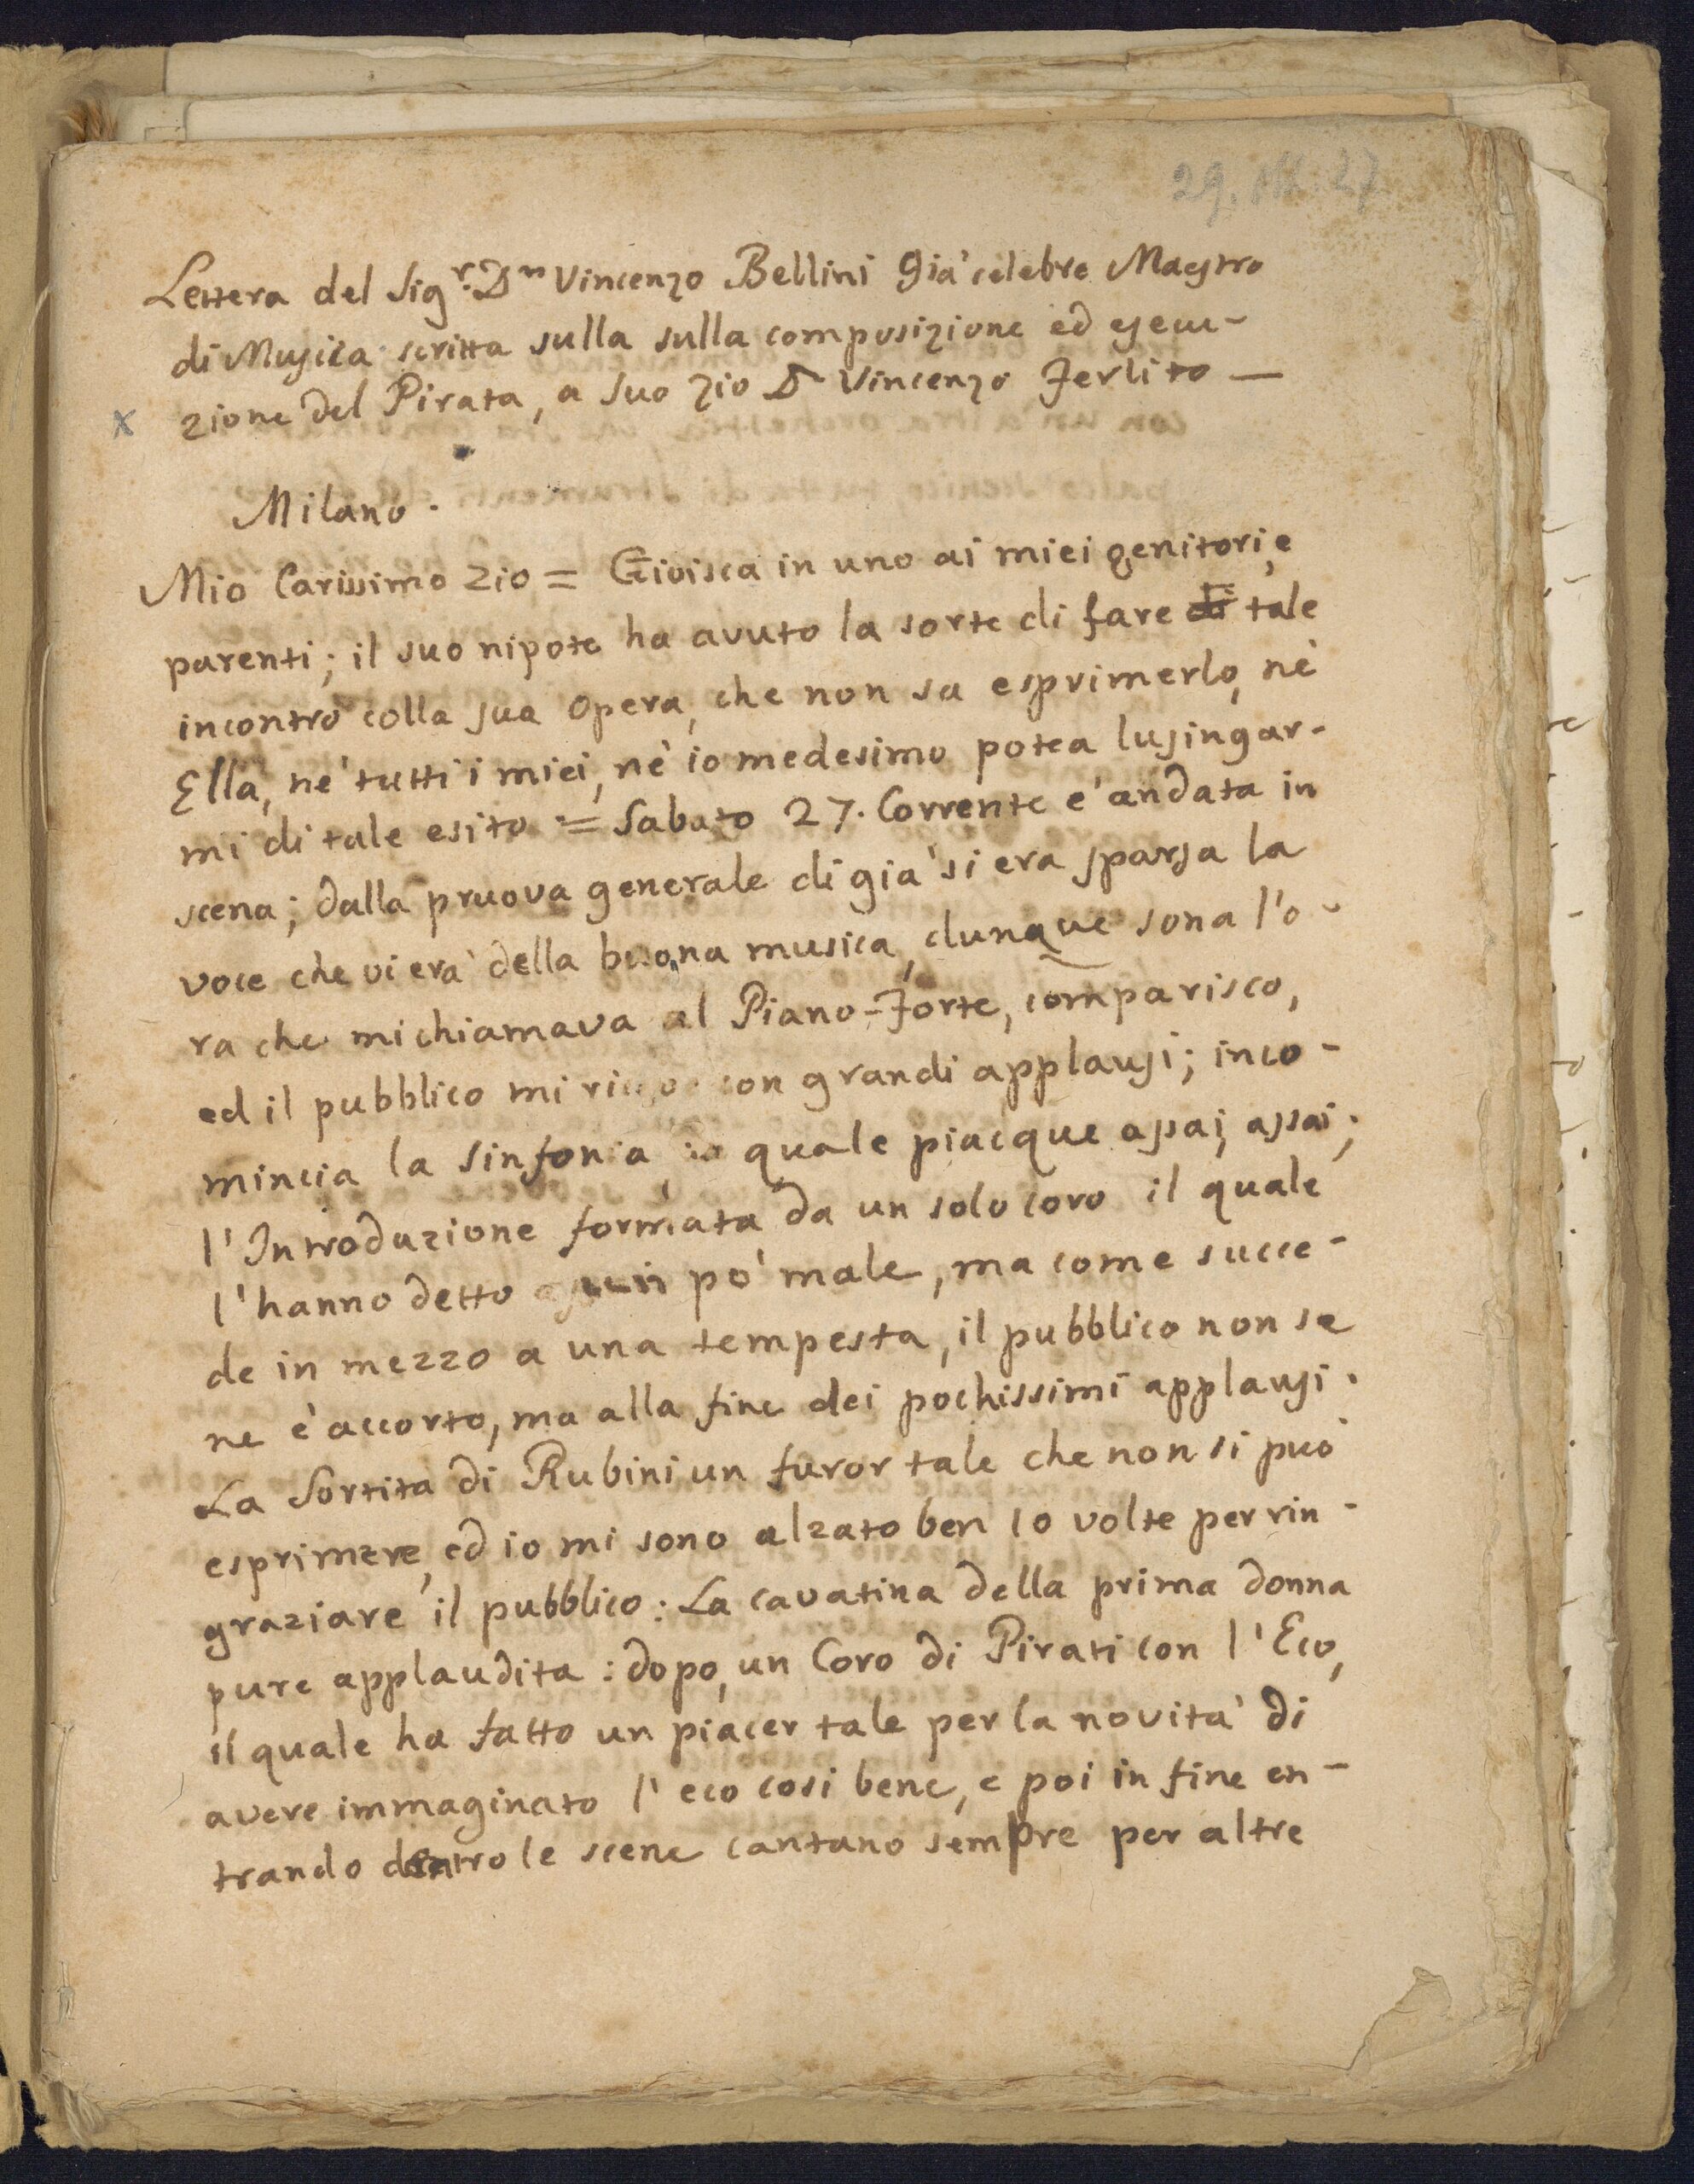 29. Ott. 27
Lettera del Sig.r Dn Vincenzo Bellini già celebre Maestro
di Musica scritta sulla sulla composizione ed esecu-
zione del Pirata, a suo zio Dn Vincenzo Ferlito —
x
Milano.
Mio Carissimo Zio = Gioisca in uno ai miei genitori, e
parenti; il suo nipote ha avuto la sorte di fare di tale
incontro colla sua Opera, che non sa esprimerlo, nè
Ella, nè tutti i miei, nè io medesimo potea lusingar-
mi di tale esito = Sabato 27. Corrente è andata in
scena; dalla pruova generale di già si era sparsa la
voce che vi era della buona musica, dunque sona l'o-
ra che mi chiamava al Piano-Forte, comparisco,
ed il pubblico mi riceve con grandi applausi; inco-
mincia la sinfonia, la quale piacque assai, assai;
l'Introduzione formata da un solo coro il quale
l'hanno detto un pò male, ma come succe-
de in mezzo a una tempesta, il pubblico non se
ne è accorto, ma alla fine dei pochissimi applausi.
La Sortita di Rubini un furor tale che non si può
esprimere, ed io mi sono alzato ben 10 volte per rin-
graziare il pubblico: La cavatina della prima donna
pure applaudita: dopo, un Coro di Pirati con l'Eco,
il quale ha fatto un piacer tale per la novità di
avere immaginato l'eco così bene, e poi in fine en-
trando dentro le scene cantano sempre per altre